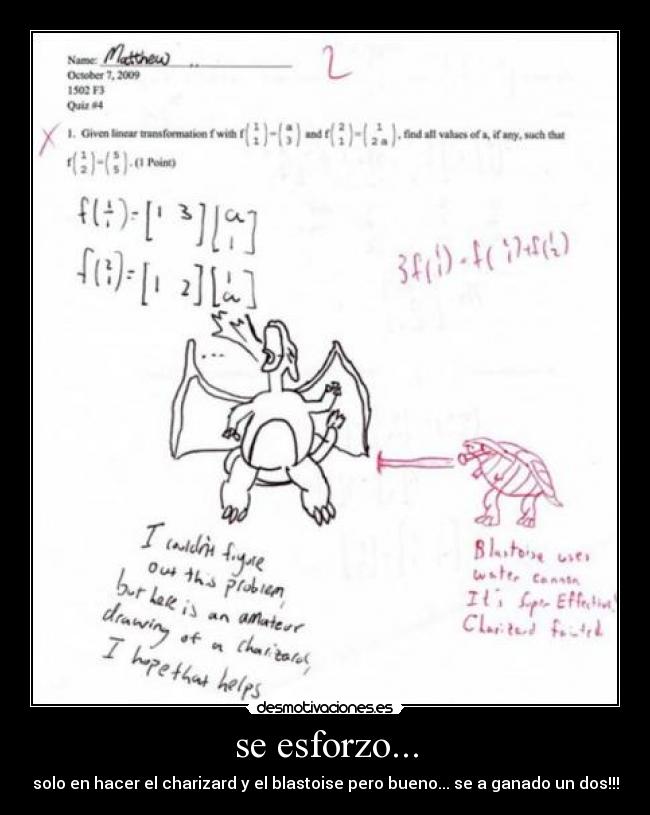 Name: Matthew
2
October 7, 2009
1502 F3
Quiz #4
X 1. Given linear transformation f with f(1 1)=(a 3) and f(2 1)=(1 2a), find all values of a, if any, such that
f(1 2)=(5 5). (1 Point)
f(1 1)=[1 3][a 1]
f(2 1)=[1 2][1 a]
3f(1 1)=f(2 1)+f(1 2)
...
I couldn't figure
out this problem,
but here is an amateur
drawing of a charizard,
I hope that helps
Blastoise uses
water cannon
It's Super Effective!
Charizard fainted
desmotivaciones.es
se esforzo...
solo en hacer el charizard y el blastoise pero bueno... se a ganado un dos!!!